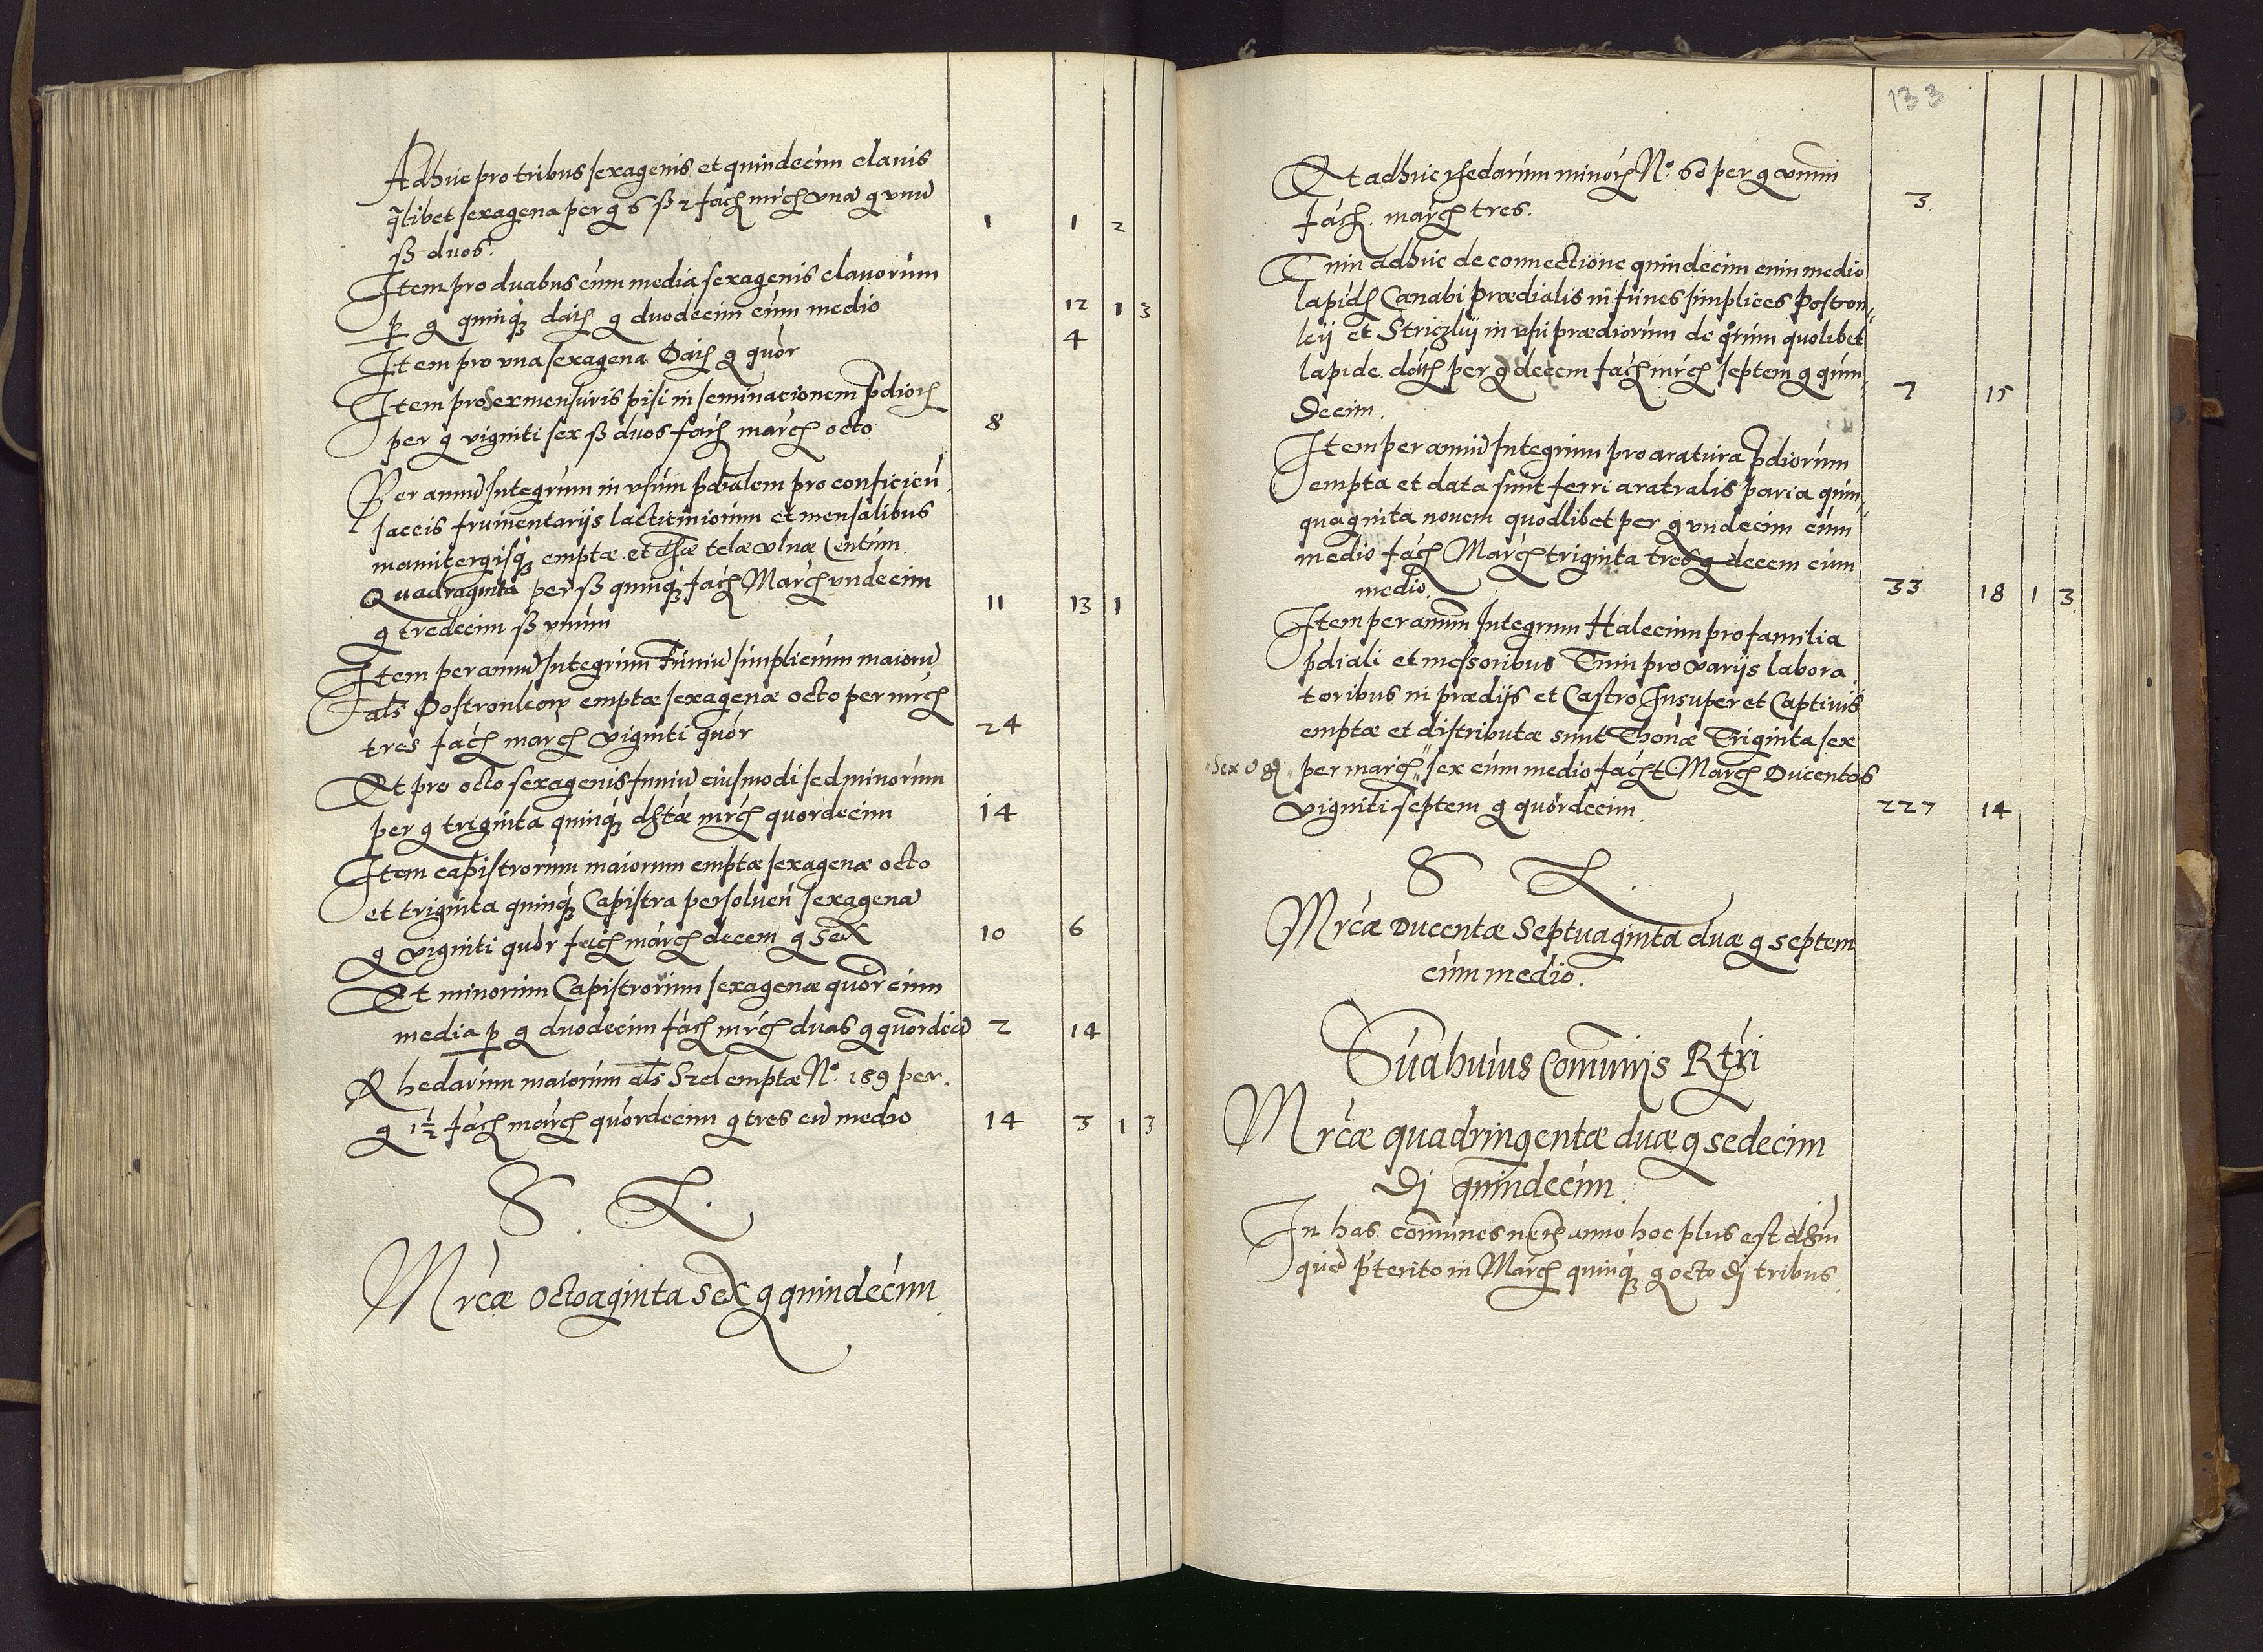 Adhuc pro tribus sexagenis et quindecim clavis
qlibet sexagena per g 6 ß 2 fách mrch vna g vnu
ß duos. 1 1 2
Item pro duabus cum media sexagenis clavorum
p g quinq dách g duodecim cum medio 12 1 3
Item pro vna sexagena dách g quor 4
Item pro sex mensuris pisi in seminacionem pdiorch
per g viginti sex ß duos fách march octo 8
Per annu Integrum in vsum pdialem pro conficien
saccis frumentarijs lacticiniorum et mensalibus
manutergisq emptæ et dhsæ telæ vlnæ Centum
Quadraginta per ß quinq fách March vndecim
g tredecim ß vnum 11 13 1
Item per annu Integrum Funiu simplicium maioru
als Postronkow emptæ sexagenæ octo per mrch
tres fách march viginti quor 24
Et pro octo sexagenis funiu eiusmodi sed minorum
per g triginta quinq dhtæ mrch quordecim 14
Item capistrorum maiorum emptæ sexagenæ octo
et triginta quinq Capistra persoluen sexagena
g viginti quor fách march decem g sex 10 6
Et minorum Capistrorum sexagenæ quor cum
media p g duodecim fách mrch duas g quordeci 2 14
Rhedarum maiorum als Szel emptæ No. 189 per
g 1½ fách march quordecim g tres cu medio 14 3 1 3
S. L.
Mrcæ octoaginta sex g quindecim
133
Et adhuc rhedarum minorch No. 60 per g vnum
fách march tres. 3
Tum adhuc de connectione quindecim cum medio
lapidch Canabi prædialis in funes simplices Postron-
kij et Striczkij in vsu prædiorum de qrum quolibet
lapide dách per g decem fách mrch septem g quin-
decim. 7 15
Item per annu Integrum pro aratura pdiorum
empta et data sunt ferri aratralis paria quin-
quaginta novem quodlibet per g vndecim cum
medio fách March triginta tres g decem cum
medio. 33 18 1 3
Item per annum Integrum Halecum pro familia
pdiali et messoribus Tum pro varijs labora
toribus in prædijs et Castro Insuper et Captivis
emptæ et distributæ sunt Thonæ Triginta sex
per march sex cum medio fácht March Ducentas
viginti septem g quordecim 227 14
S L.
Mrcæ Ducentæ Septuaginta duæ g septem
cum medio.
Suma huius Comunis Rtri
Mrcæ quadringentæ duæ g sedecim
dj quindecim.
In has comunes nrch anno hoc plus est dhm
que pterito in March quinq g octo dj tribus